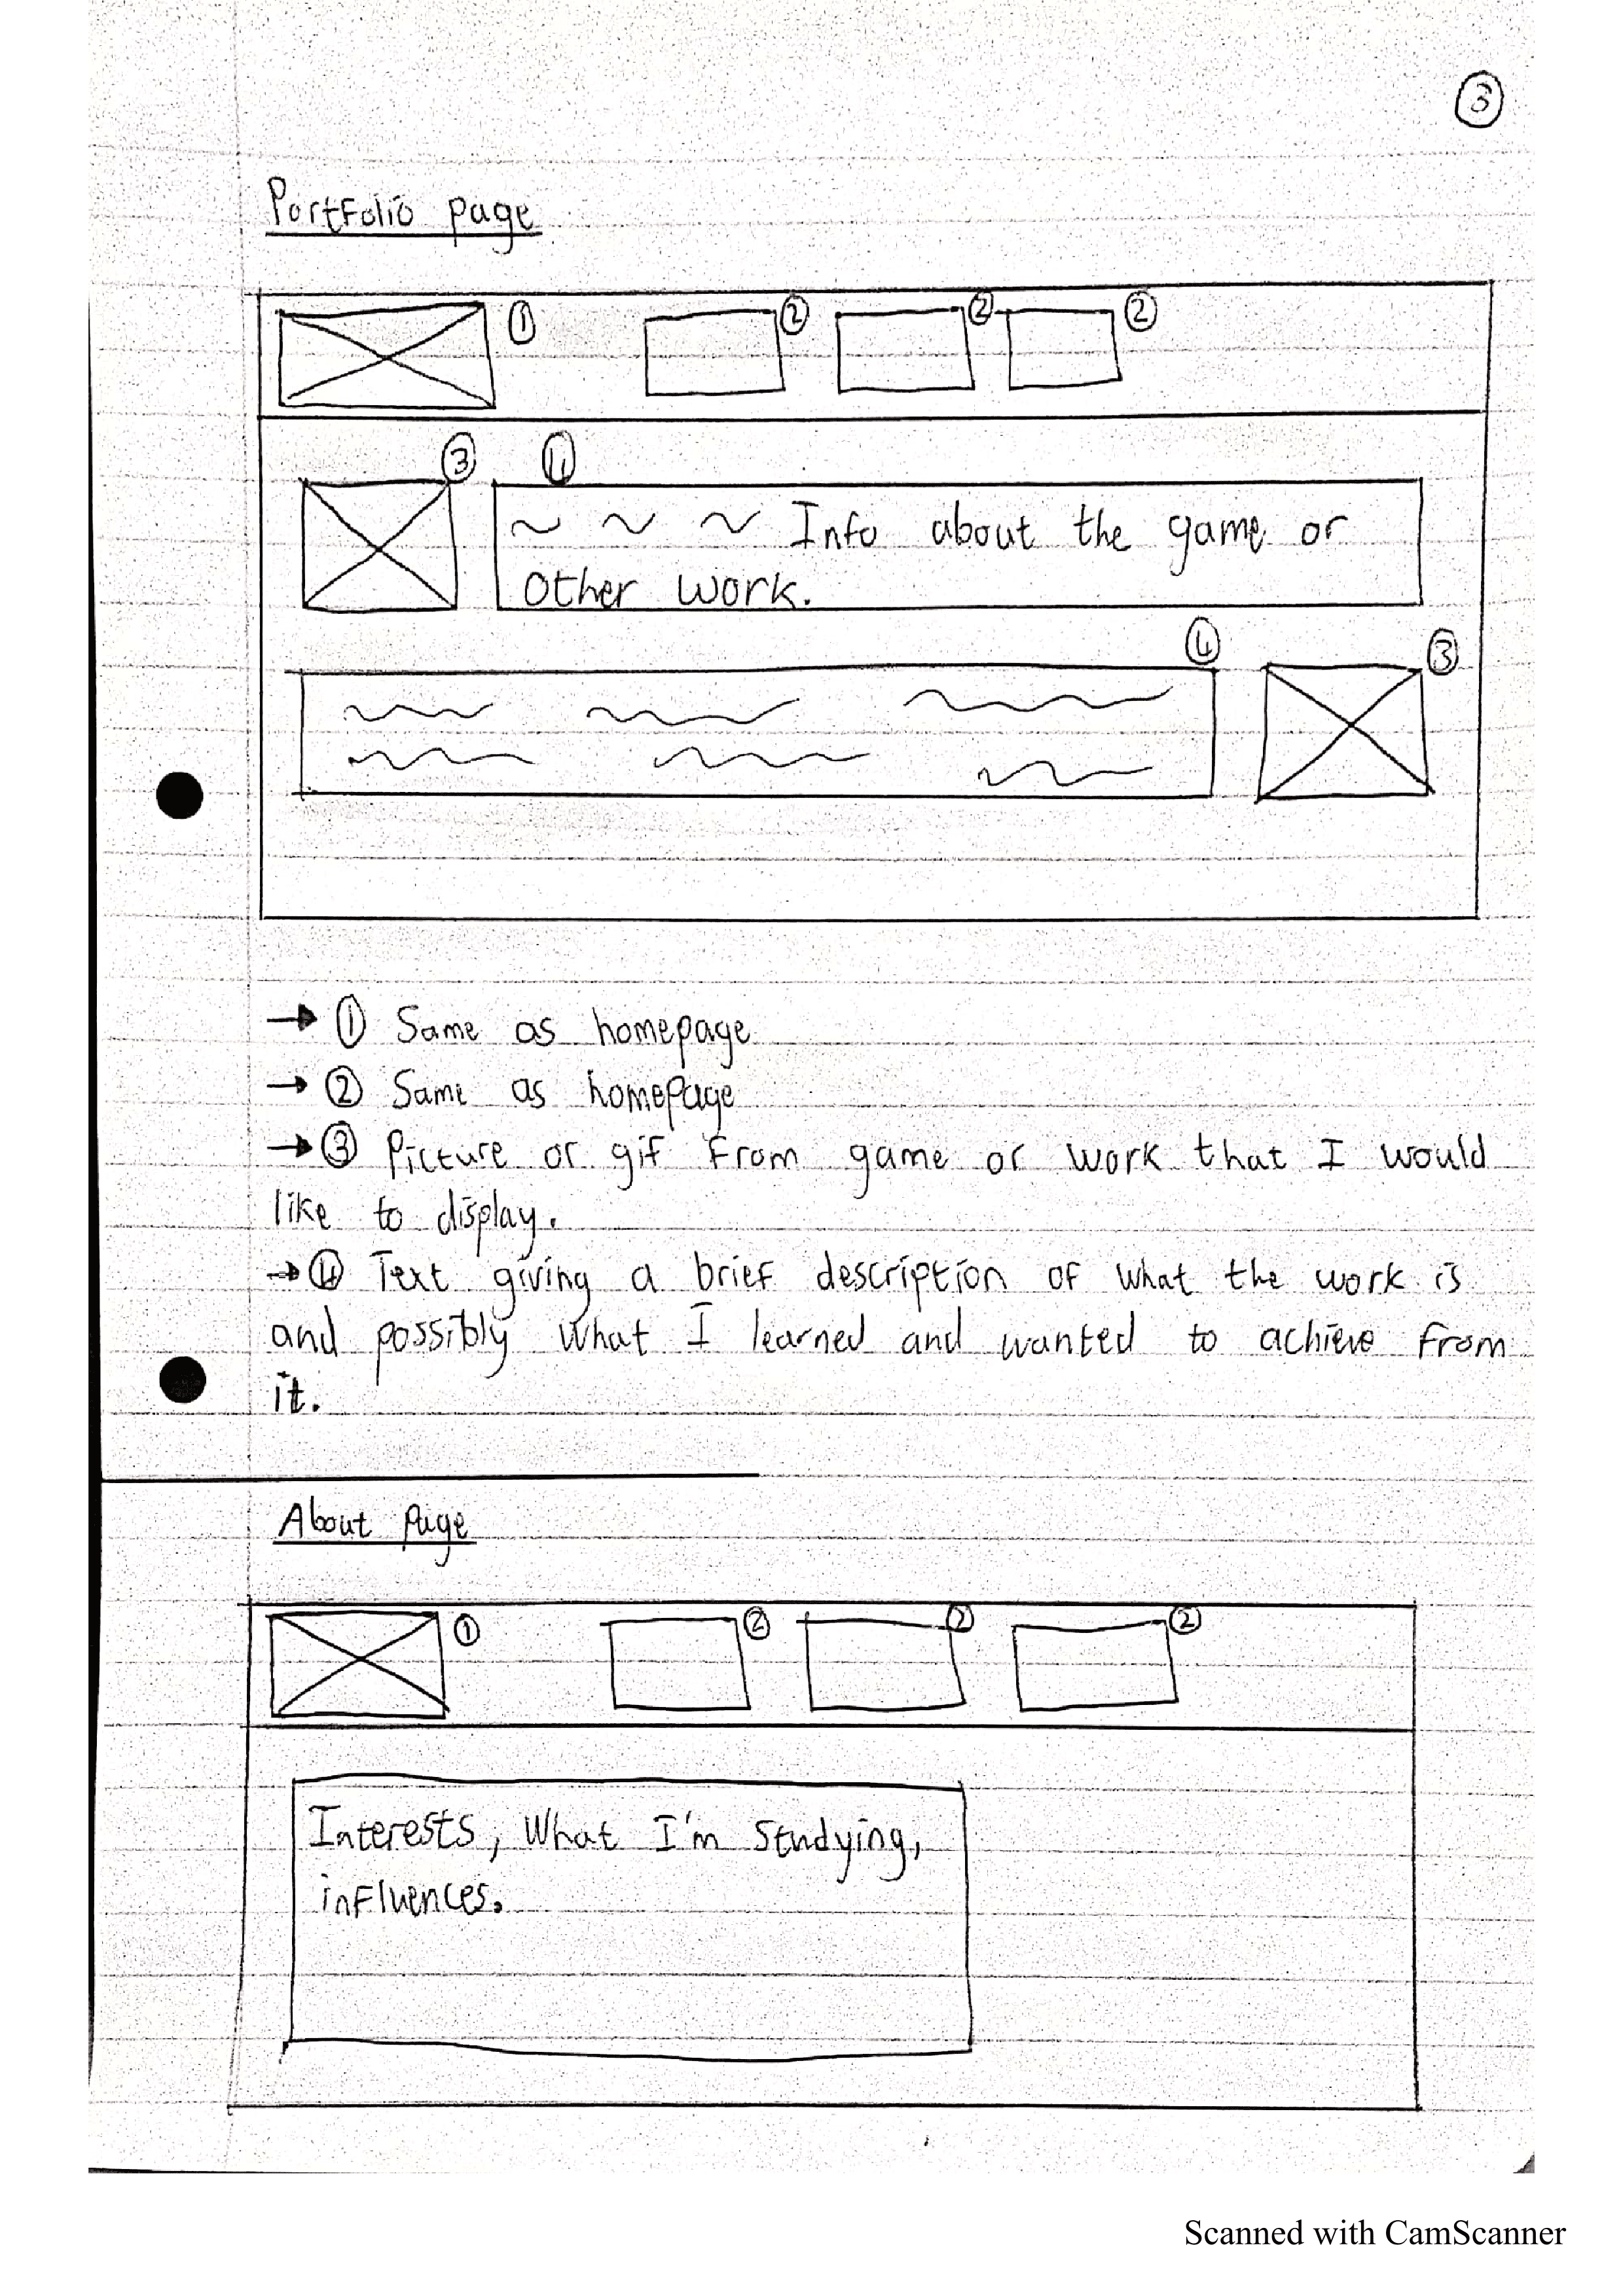 ③
Portfolio page
① ② ② ②
③ ④
Info about the game or
other work.
④ ③
→ ① Same as homepage
→ ② Same as homepage
→ ③ Picture or gif from game or work that I would
like to display.
→ ④ Text giving a brief description of what the work is
and possibly what I learned and wanted to achieve from
it.
About page
① ② ② ②
Interests, What I'm studying,
influences.
Scanned with CamScanner